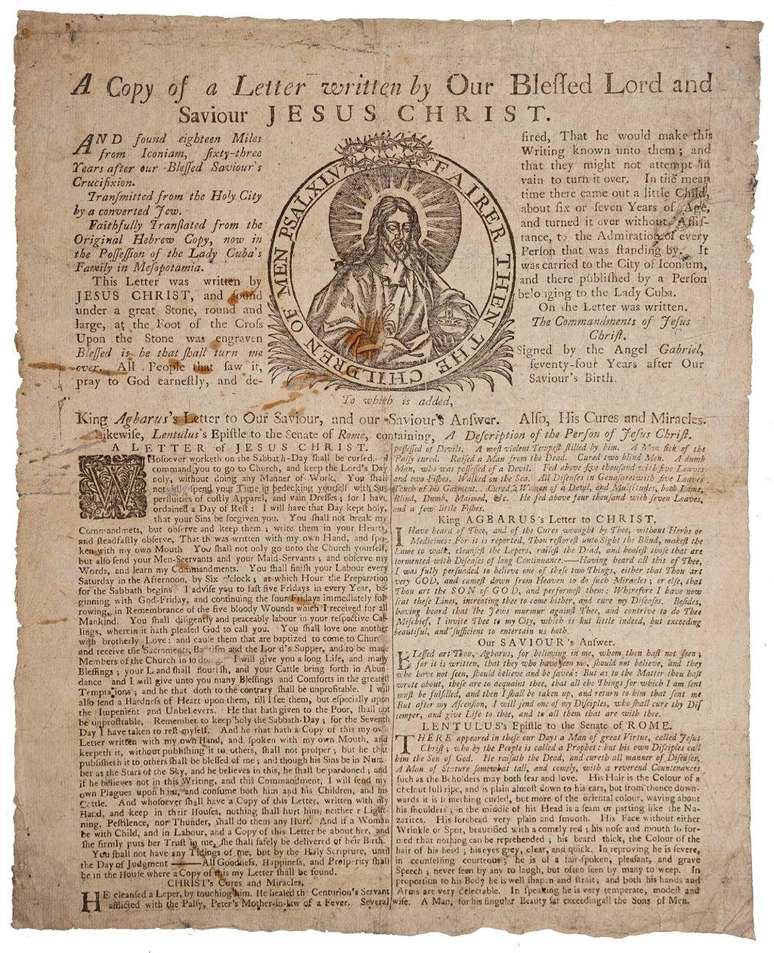 A Copy of a Letter written by Our Blessed Lord and
Saviour JESUS CHRIST.
AND found eighteen Miles
from Iconiam, sixty-three
Years after our Blessed Saviour's
Crucifixion.
Transmitted from the Holy City
by a converted Jew.
Faithfully Translated from the
Original Hebrew Copy, now in
the Possession of the Lady Cuba's
Family in Mesopotamia.
This Letter was written by
JESUS CHRIST, and found
under a great Stone, round and
large, at the Foot of the Cross
Upon the Stone was engraven
Blessed is he that shall turn me
over. All People that saw it,
pray to God earnestly, and de-
FAIRER THEN THE CHILDREN OF MEN PSALXLV
sired, That he would make this
Writing known unto them; and
that they might not attempt in
vain to turn it over. In the mean
time there came out a little Child,
about six or seven Years of Age,
and turned it over without Assis-
tance, to the Admiration of every
Person that was standing by. It
was carried to the City of Iconium,
and there published by a Person
belonging to the Lady Cuba.
On the Letter was written.
The Commandments of Jesus
Christ.
Signed by the Angel Gabriel,
seventy-four Years after Our
Saviour's Birth.
To which is added,
King Agbarus's Letter to Our Saviour, and our Saviour's Answer. Also, His Cures and Miracles.
Likewise, Lentulus's Epistle to the Senate of Rome, containing, A Description of the Person of Jesus Christ.
A LETTER of JESUS CHRIST.
Whosoever worketh on the Sabbath-Day shall be cursed. I
command you to go to Church, and keep the Lord's Day
holy, without doing any Manner of Work. You shall
not idly spend your Time in bedecking yourself with Su-
perfluities of costly Apparel, and vain Dresses; for I have
ordained a Day of Rest: I will have that Day kept holy,
that your Sins be forgiven you. You shall not break my
Commandmets, but observe and keep them; write them in your Hearts,
and steadfastly observe, That this was written with my own Hand, and spo-
ken with my own Mouth You shall not only go unto the Church yourself,
but also send your Men-Servants and your Maid-Servants; and observe my
Words, and learn my Commandments. You shall finish your Labour every
Saturday in the Afternoon, by Six o'Clock; at which Hour the Preparation
for the Sabbath begins I advise you to fast five Fridays in every Year, be-
ginning with God-Friday, and continuing the four Fridays immediately fol-
rowing, in Remembrance of the five bloody Wounds which I received for all
Mankind. You shall diligently and peaceably labour in your respective Cal-
lings, wherein it hath pleased God to call you. You shall love one another
with brotherly Love: and cause them that are baptized to come to Church
and receive the Sacraments, Baptism and the Lord's Supper, and to be made
Members of the Church in so doing I will give you a long Life, and many
Blessings; your Land shall flourish, and your Cattle bring forth in Abun-
dance and I will give unto you many Blessings and Comforts in the greatest
Temptations; and he that doth to the contrary shall be unprofitable. I will
also send a Hardness of Heart upon them, till I see them, but especially upon
the Impenient and Unbelevers. He that hath given to the Poor, shall not
be unprofitable, Remember to keep holy the Sabbath-Day; for the Seventh
Day I have taken to rest myself. And he that hath a Copy of this my own
Letter written with my own Hand, and spoken with my own Mouth, and
keepeth it, without publishing it to others, shall not prosper; but he that
publisheth it to others shall be blessed of me; and though his Sins be in Num-
ber as the Stars of the Sky, and he believes in this, he shall be pardoned; and
if he believes not in this Writing, and this Commandment, I will send my
own Plagues upon him, and consume both him and his Children, and his
Cattle. And whosoever shall have a Copy of this Letter, written with my
Hand, and keep in their Houses, nothing shall hurt him, neither Light-
ning, Pestilence, nor Thunder, shall do them any Hurt. And if a Woman
be with Child, and in Labour, and a Copy of this Letter be about her, and
she firmly puts her Trust in me, she shall safely be delivered of heir Birth.
You shall not have any Tidings of me, but by the Holy Scripture, until
the Day of Judgment All Goodness, Happiness, and Prosperity shall
be in the House where a Copy of this my Letter shall be found.
CHRIST's Cures and Miracles,
HE cleansed a Leper, by touching him. He healed the Centurion's Servant
afflicted with the Palsy, Peter's Mother-in-law of a Fever. Several
possessed of Devils. A most violent Tempest stilled by him. A Man sick of the
Palsy cured. Raised a Man from the Dead. Cured two blind Men. A dumb
Man, who was possessed of a Devil. Fed above five thousand with five Loaves
and two Fishes. Walked on the Sea. All Diseases in Genasaret with
of his Garment. Cured a Woman of a Devil, and Multitudes, both Lame,
Blind, Dumb, Maimed, &c. He fed above four thousand with seven Loaves,
and a few little Fishes.
King AGBARUS's Letter to CHRIST.
I Have heard of Thee, and of the Cures wrought by Thee, without Herbs or
Medicines: For it is reported, Thou restorest unto Sight the Blind, makest the
Lame to walk, cleansest the Lepers, raisest the Dead, and healest those that are
tormented with Diseases of long Continuance.—Having heard all this of Thee,
I was fully persuaded to believe one of these two Things, either that Thou art
very GOD, and camest down from Heaven to do such Miracles; or else, that
Thou art the SON of GOD, and performest them: Wherefore I have now
sent these Lines, intreating thee to come hither, and cure my Diseases. Besides,
having heard that The Jews murmur against Thee, and contrive to do Thee
Mischief, I invite Thee to my City, which is but little indeed, but exceeding
beautiful, and sufficient to entertain us both.
Our SAVIOUR's Answer.
BLessed art Thou, Agbarus, for believing in me, whom thou hast not seen;
for it is written, that they who have seen me, should not believe, and they
who have not seen, should believe and be saved: But as to the Matter thou hast
wrote about, these are to acquaint thee, that all the Things for which I am sent
must be fulfilled, and then I shall be taken up, and return to him that sent me
But after my Ascension, I will send one of my Disciples, who shall cure thy Dis
temper, and give Life to thee, and to all them that are with thee.
LENTULUS's Epistle to the Senate of ROME.
THERE appeared in these our Days a Man of great Virtue, called Jesus
Christ; who by the People is called a Prophet: but his own Disciples call
him the Son of God. He raiseth the Dead, and cureth all manner of Diseases,
A Man of Stature somewhat tall, and comely, with a reverend Countenance
such as the Beholders may both fear and love. His Hair is the Colour of a
chesnut full ripe, and is plain almost down to his ears, but from thence down-
wards it is something curled, but more of the oriental colour, waving about
his shoulders; in the middle of his Head is a seam or parting like the Na-
zarites. His forehead very plain and smooth. His Face without either
Wrinkle or Spot, beautified with a comely red; his nose and mouth so for-
ned that nothing can be reprehended; his beard thick, the Colour of the
hair of his head; his eyes grey, clear, and quick. In reproving he is severe,
in counselling courteous; he is of a fair-spoken, pleasant, and grave
Speech; never seen by any to laugh, but often seen by many to weep. In
proportion to his Body he is well shapen and strait, and both his hands and
Arms are very delectable. In speaking he is very temperate, modest and
wife. A Man, for his singular Beauty far exceeding all the Sons of Men.